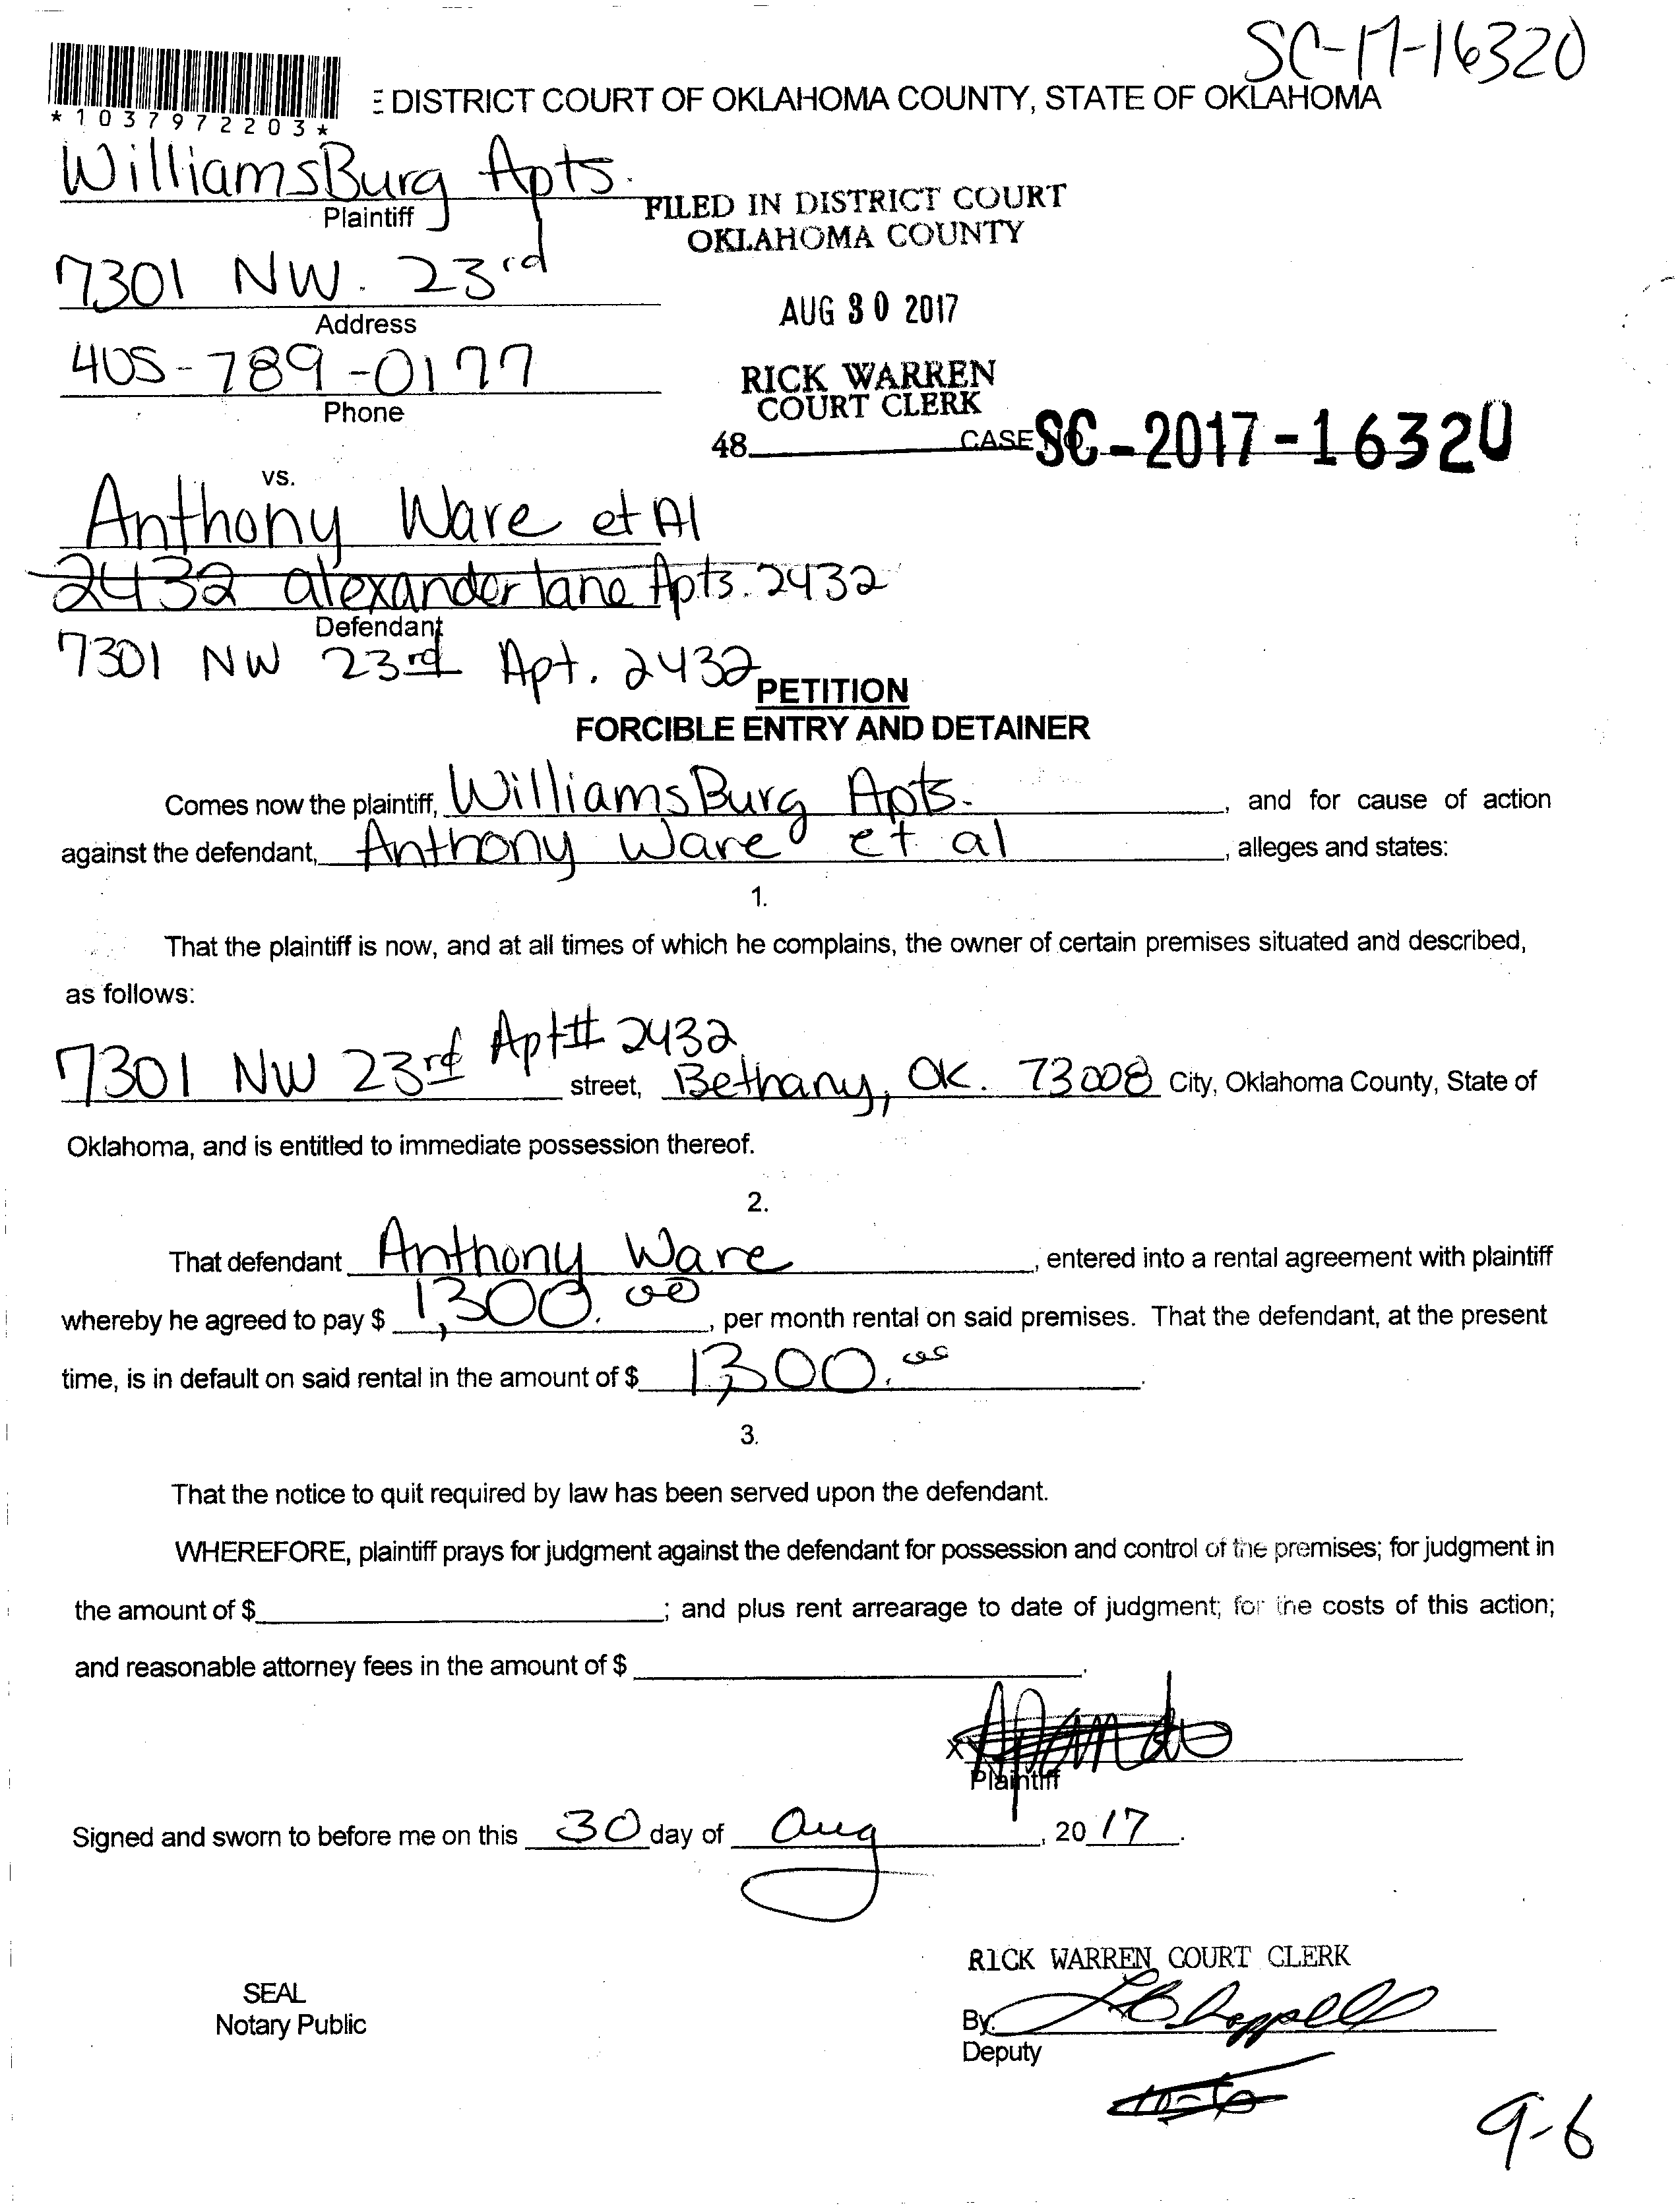 SC-17-16320
*1037972203*
E DISTRICT COURT OF OKLAHOMA COUNTY, STATE OF OKLAHOMA
WilliamsBurg Apts.
Plaintiff
FILED IN DISTRICT COURT
OKLAHOMA COUNTY
7301 NW. 23rd
Address
AUG 30 2017
405-789-0177
Phone
RICK WARREN
COURT CLERK
48 CASE NO. SC-2017-16320
vs.
Anthony Ware et Al
2432 alexander lane Apts. 2432
Defendant
7301 NW 23rd Apt. 2432
PETITION
FORCIBLE ENTRY AND DETAINER
Comes now the plaintiff, WilliamsBurg Apts. , and for cause of action
against the defendant, Anthony Ware et al , alleges and states:
1.
That the plaintiff is now, and at all times of which he complains, the owner of certain premises situated and described,
as follows:
7301 NW 23rd Apt# 2432 street, Bethany, OK. 73008 City, Oklahoma County, State of
Oklahoma, and is entitled to immediate possession thereof.
2.
That defendant Anthony Ware , entered into a rental agreement with plaintiff
whereby he agreed to pay $ 1,300.00 , per month rental on said premises. That the defendant, at the present
time, is in default on said rental in the amount of $ 1,300.00 .
3.
That the notice to quit required by law has been served upon the defendant.
WHEREFORE, plaintiff prays for judgment against the defendant for possession and control of the premises; for judgment in
the amount of $ ; and plus rent arrearage to date of judgment; for the costs of this action;
and reasonable attorney fees in the amount of $ .
X
Plaintiff
Signed and sworn to before me on this 30 day of Aug , 20 17 .
RICK WARREN COURT CLERK
SEAL
Notary Public
By:
Deputy
9-6